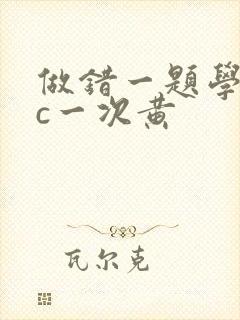 做錯一題學
c一次黄
瓦尔克